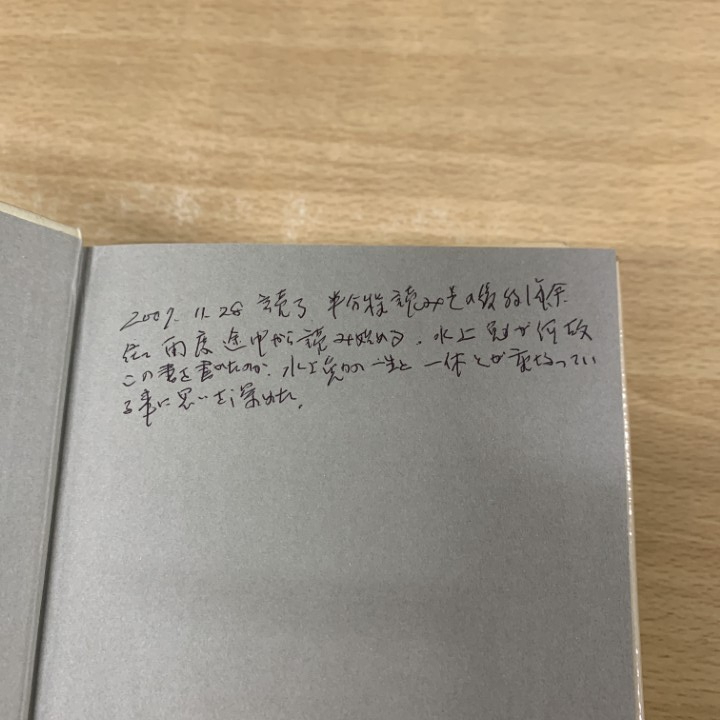 2009. 11. 28 読了 半分程読み其の後約1年余
再度途中から読み始める。水上勉が何故
この書を書いたのか、水上勉の一生と一休とが重なってい
る事に思いを深めた。